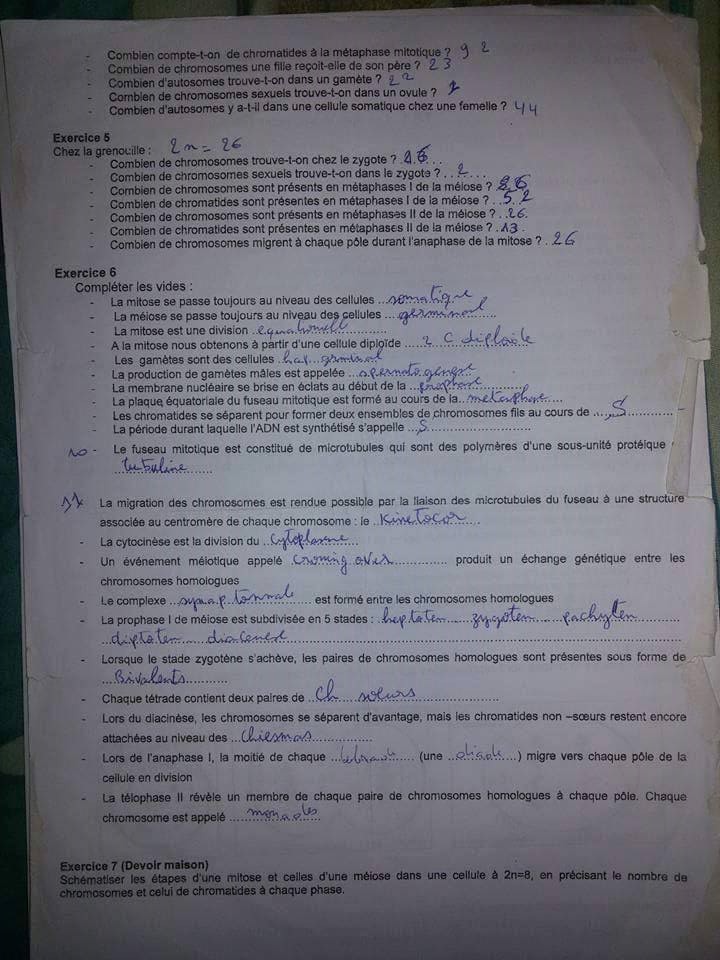 - Combien compte-t-on de chromatides à la métaphase mitotique ? 92
- Combien de chromosomes une fille reçoit-elle de son père ? 23
- Combien d'autosomes trouve-t-on dans un gamète ? 22
- Combien de chromosomes sexuels trouve-t-on dans un ovule ? 1
- Combien d'autosomes y a-t-il dans une cellule somatique chez une femelle ? 44
Exercice 5
Chez la grenouille : 2n = 26
- Combien de chromosomes trouve-t-on chez le zygote ? 26...
- Combien de chromosomes sexuels trouve-t-on dans le zygote ? ..2....
- Combien de chromosomes sont présents en métaphases I de la méiose ? 26
- Combien de chromatides sont présentes en métaphases I de la méiose ? ..52
- Combien de chromosomes sont présents en métaphases II de la méiose ? ..26.
- Combien de chromatides sont présentes en métaphases II de la méiose ? .13.
- Combien de chromosomes migrent à chaque pôle durant l'anaphase de la mitose ? . 26
Exercice 6
Compléter les vides :
- La mitose se passe toujours au niveau des cellules ...somatique
- La méiose se passe toujours au niveau des cellules ...germinal
- La mitose est une division ..equationell
- A la mitose nous obtenons à partir d'une cellule diploïde .....2 C diploide
- Les gamètes sont des cellules .hap...germinal
- La production de gamètes mâles est appelée ...spermatogenese
- La membrane nucléaire se brise en éclats au début de la ...prophase...........
- La plaque équatoriale du fuseau mitotique est formé au cours de la..metaphase....
- Les chromatides se séparent pour former deux ensembles de chromosomes fils au cours de ....S............
- La période durant laquelle l'ADN est synthétisé s'appelle ...S..........................
10 - Le fuseau mitotique est constitué de microtubules qui sont des polymères d'une sous-unité protéique
..tubuline.........
- La migration des chromosomes est rendue possible par la liaison des microtubules du fuseau à une structure
associée au centromère de chaque chromosome : le ..Kinetocor....
- La cytocinèse est la division du ..Cytoplasme...
- Un événement méiotique appelé crowing over............. produit un échange génétique entre les
chromosomes homologues
- Le complexe ...synaptonmale..... est formé entre les chromosomes homologues
- La prophase I de méiose est subdivisée en 5 stades : heptoten....zygoten....pachyten......
..diptoten....diacenese..................................................
- Lorsque le stade zygotène s'achève, les paires de chromosomes homologues sont présentes sous forme de
...Bivalents.............
- Chaque tétrade contient deux paires de ...Ch...soeurs...................
- Lors du diacinèse, les chromosomes se séparent d'avantage, mais les chromatides non –sœurs restent encore
attachées au niveau des ..Chiesmas...............
- Lors de l'anaphase I, la moitié de chaque ...tetrade..... (une ..diade...) migre vers chaque pôle de la
cellule en division
- La télophase II révèle un membre de chaque paire de chromosomes homologues à chaque pôle. Chaque
chromosome est appelé .....monades
Exercice 7 (Devoir maison)
Schématiser les étapes d'une mitose et celles d'une méiose dans une cellule à 2n=8, en précisant le nombre de
chromosomes et celui de chromatides à chaque phase.